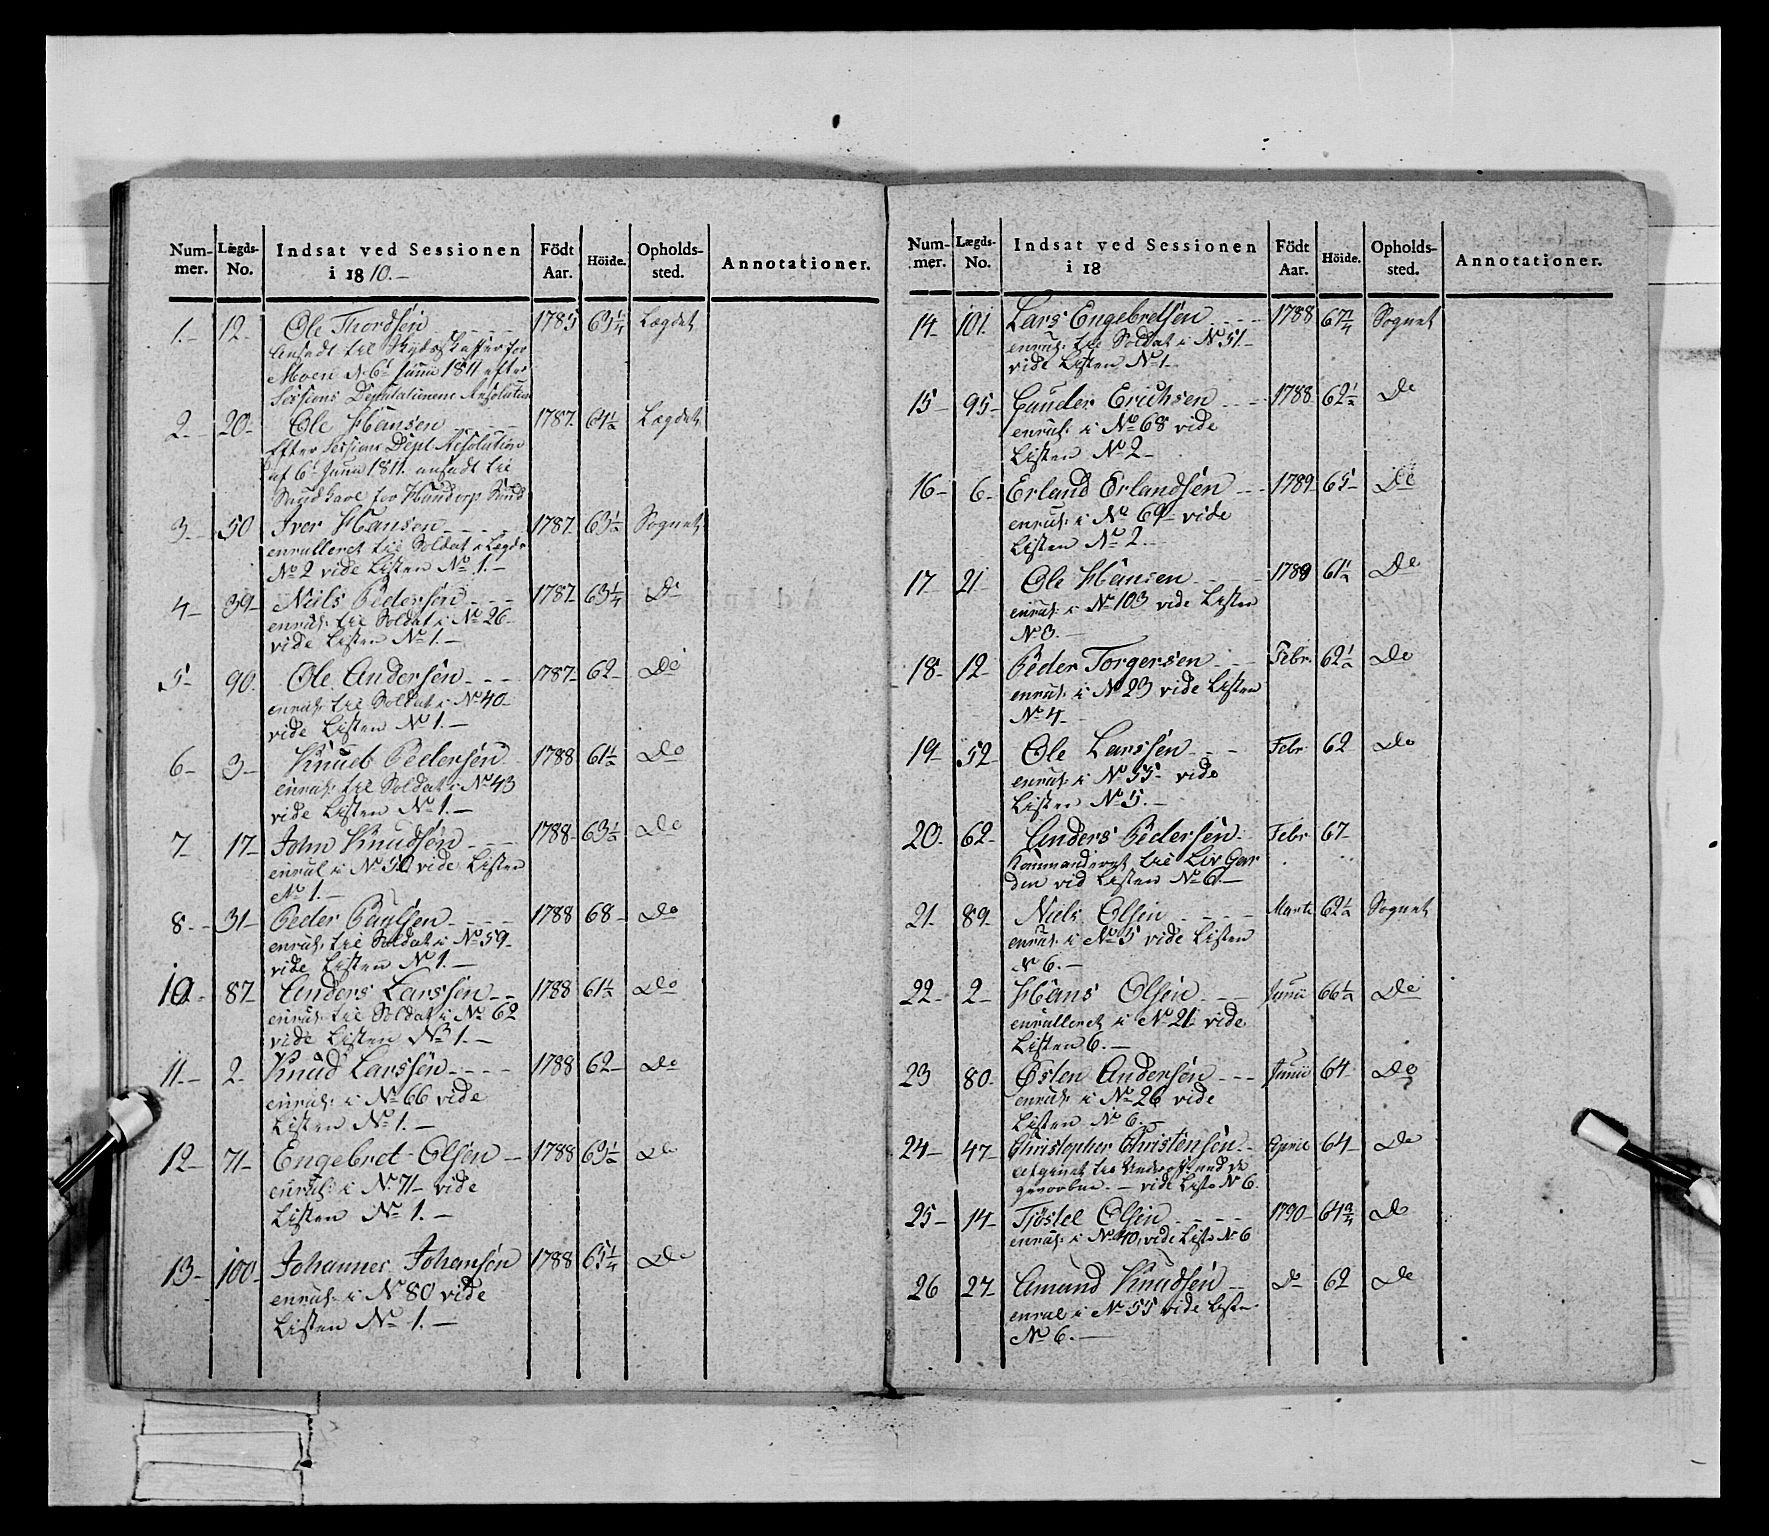 Num-mer. Lægds-No. Indsat ved Sessionen i 1810.- Födt Aar. Höide. Opholds-sted. Annotationer.
1.- 12- Ole Thordsen - - - - 1785 63 1/4 Lægdet
Ansadt til Skydsskaffer for
Moen d. 6t Junii 1811 efter
Sessions Deputationens Resolution
2.- 20- Ole Hansen - - - - 1787. 61 1/2 Lægdet
Efter Sessions Dept Resolution
af 6t Junii 1811 ansadt til
Sundkarl for Hundorp Sund
3.- 50 Iver Hansen - - - - 1787. 63 1/2 Sognet
enrulleret til Soldat i Lægds
No 2 vide Listen No 1.-
4- 39- Niels Pedersen - - - 1787- 63 1/4 Do
enrul: til Soldat i No 26-
vide Listen No 1.-
5- 90. Ole Andersen - - - 1787- 62- Do
enrul: til Soldat i No 40-
vide Listen No 1.-
6- 3- Knud Pedersen 1788 61 1/2 Do
enrul: til Soldat i No 43
vide Listen No 1.-
7- 17- John Knudsen - - - 1788- 63 1/2 Do
enrul i No 50 vide Listen
No 1.-
8- 31- Peder Paulsen - - - - 1788 68- Do
enrul: til Soldat i No 59-
vide Listen No 1.-
10- 87- Anders Larssen - - 1788 61 1/2 Do
enrul: til Soldat i No 62
vide Listen No 1.-
11- 2- Knud Larssen - - - - 1788 62- Do
enrul: i No 66 vide
Listen No 1.-
12- 71- Engebret Olsen - 1788 63 1/2 Do
enrul: i No 71- vide
Listen No 1.-
13- 100- Johannes Johansen 1788 65 1/4 Do
enrul: i No 80 vide
Listen No 1.-
Num-mer. Lægds-No. Indsat ved Sessionen i 18 Födt Aar. Höide. Opholds-sted. Annotationer.
14- 101. Lars Engebretsen - - - 1788 67 1/4 Sognet
enrul: til Soldat i No 51-
vide Listen No 1-
15- 95- Gunder Erichsen - - - 1788 62 1/2 Do
enrul: i No 68 vide
Listen No 2-
16- 6- Erland Erlandsen - - - 1789 65- Do
enrul: i No 69- vide
Listen No 2.-
17- 21- Ole Hansen - - - 1789 61 1/2 Do
enrul: i No 103 vide Listen
No 3.-
18- 12- Peder Torgersen - - Febr. 62 1/2 Do
enrul: i No 23 vide Listen
No 4-
19- 52- Ole Larssen - - - Febr 62 Do
enrul: i No 55- vide
Listen No 5.-
20. 62- Anders Pedersen - Febr 67-
Commanderet til Liv Gar
den vid Listen No 6.-
21- 89- Niels Olsen - - - - Marti 62 1/2 Sognet
enrul: i No 5 vide Listen
No 6.-
22- 2- Hans Olsen - - Junii 66 1/2 Do
enrulleret i No 21 vide
Listen 6.-
23 80- Østen Andersen - - - Junii 64- Do
enrul: i No 26 vide
Listen No 6.-
24- 47- Christopher Christensen - - April 64- Do
vide Liste No 6.
25- 14- Tjøstel Olsen - - - - 1790- 64 3/4 Do
enrul: i No 40, vide Liste No 6
26 27- Amund Knudsen - - Do 62 Do
enrul i No 55 vide Listen
No 6.-